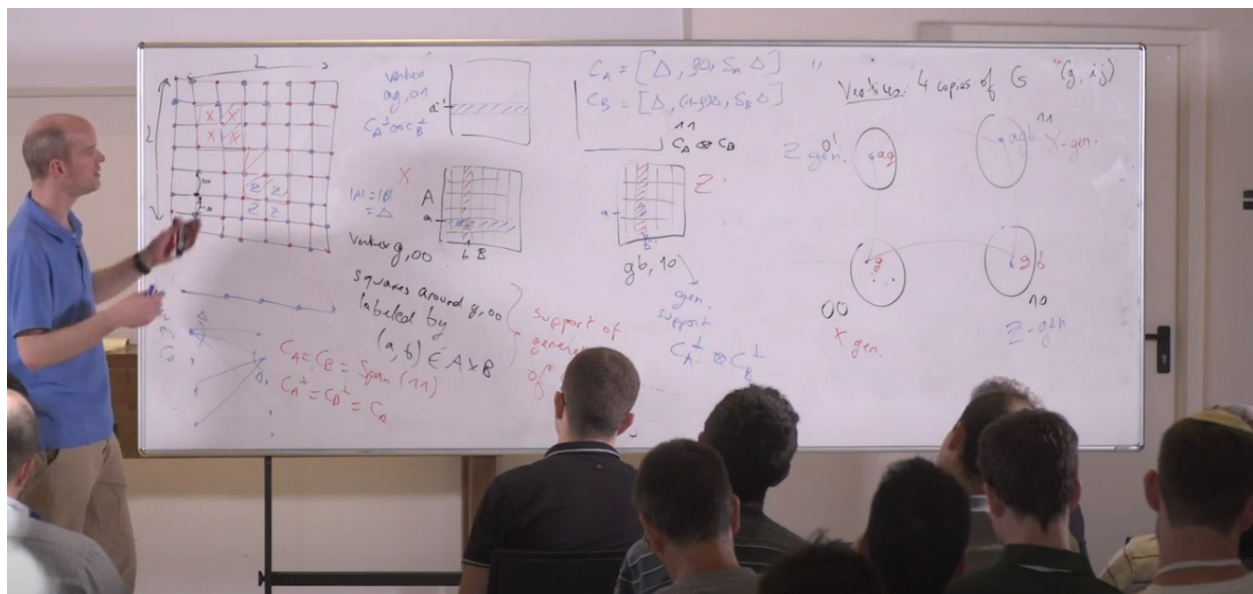 L
L
X X
X X
Z Z
Z Z
vertex
ag, 01
C_A^⊥ ⊗ C_B^⊥
a^-1
X
|A| = |B|
= Δ
A
a
b B
Vertex g, 00
squares around g, 00
labeled by
(a, b) ∈ A × B
support of
of
C_A = C_B = Span (11)
C_A^⊥ = C_B^⊥ = C_A
C_A = [Δ, ρΔ, δ_A Δ]
C_B = [Δ, (1-ρ)Δ, δ_B Δ]
C_A ⊗ C_B
a
Z
gb, 10
gen.
support
C_A^⊥ ⊗ C_B^⊥
Vertices: 4 copies of G "(g, ij)
Z gen. 01
ag
agb
11
X-gen.
g
gb
00
X gen.
10
Z-gen